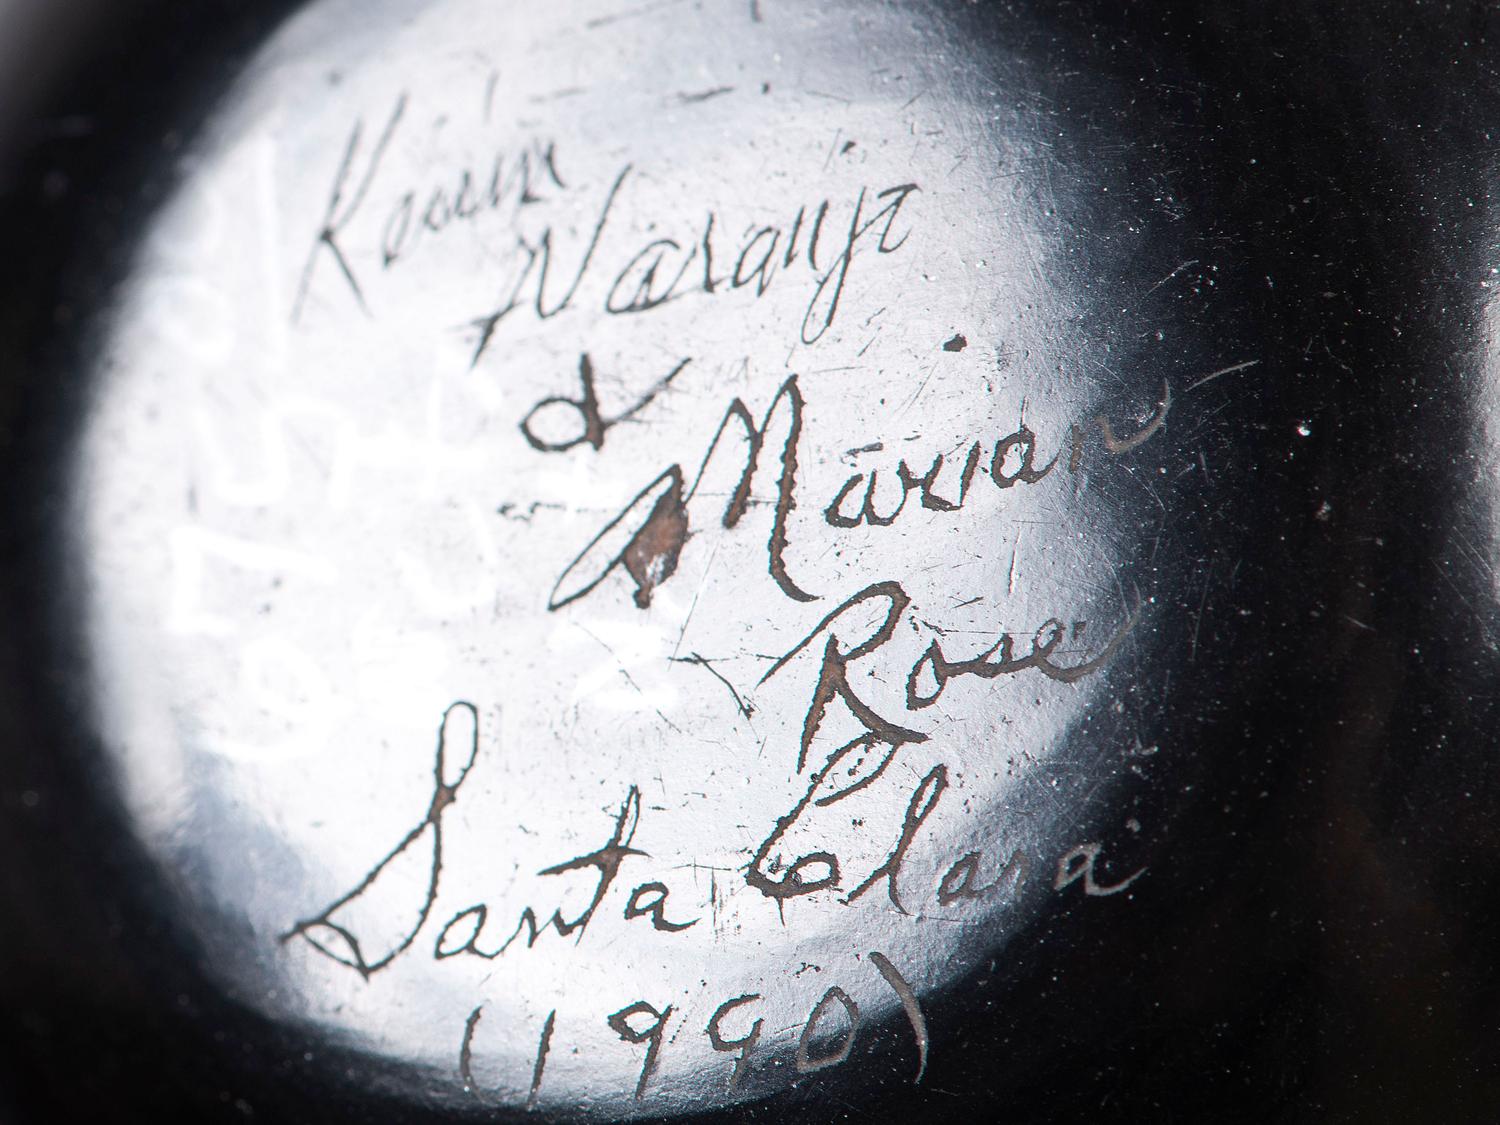 Kevin
Naranjo
&
Marian
Rose
Santa Clara
(1990)